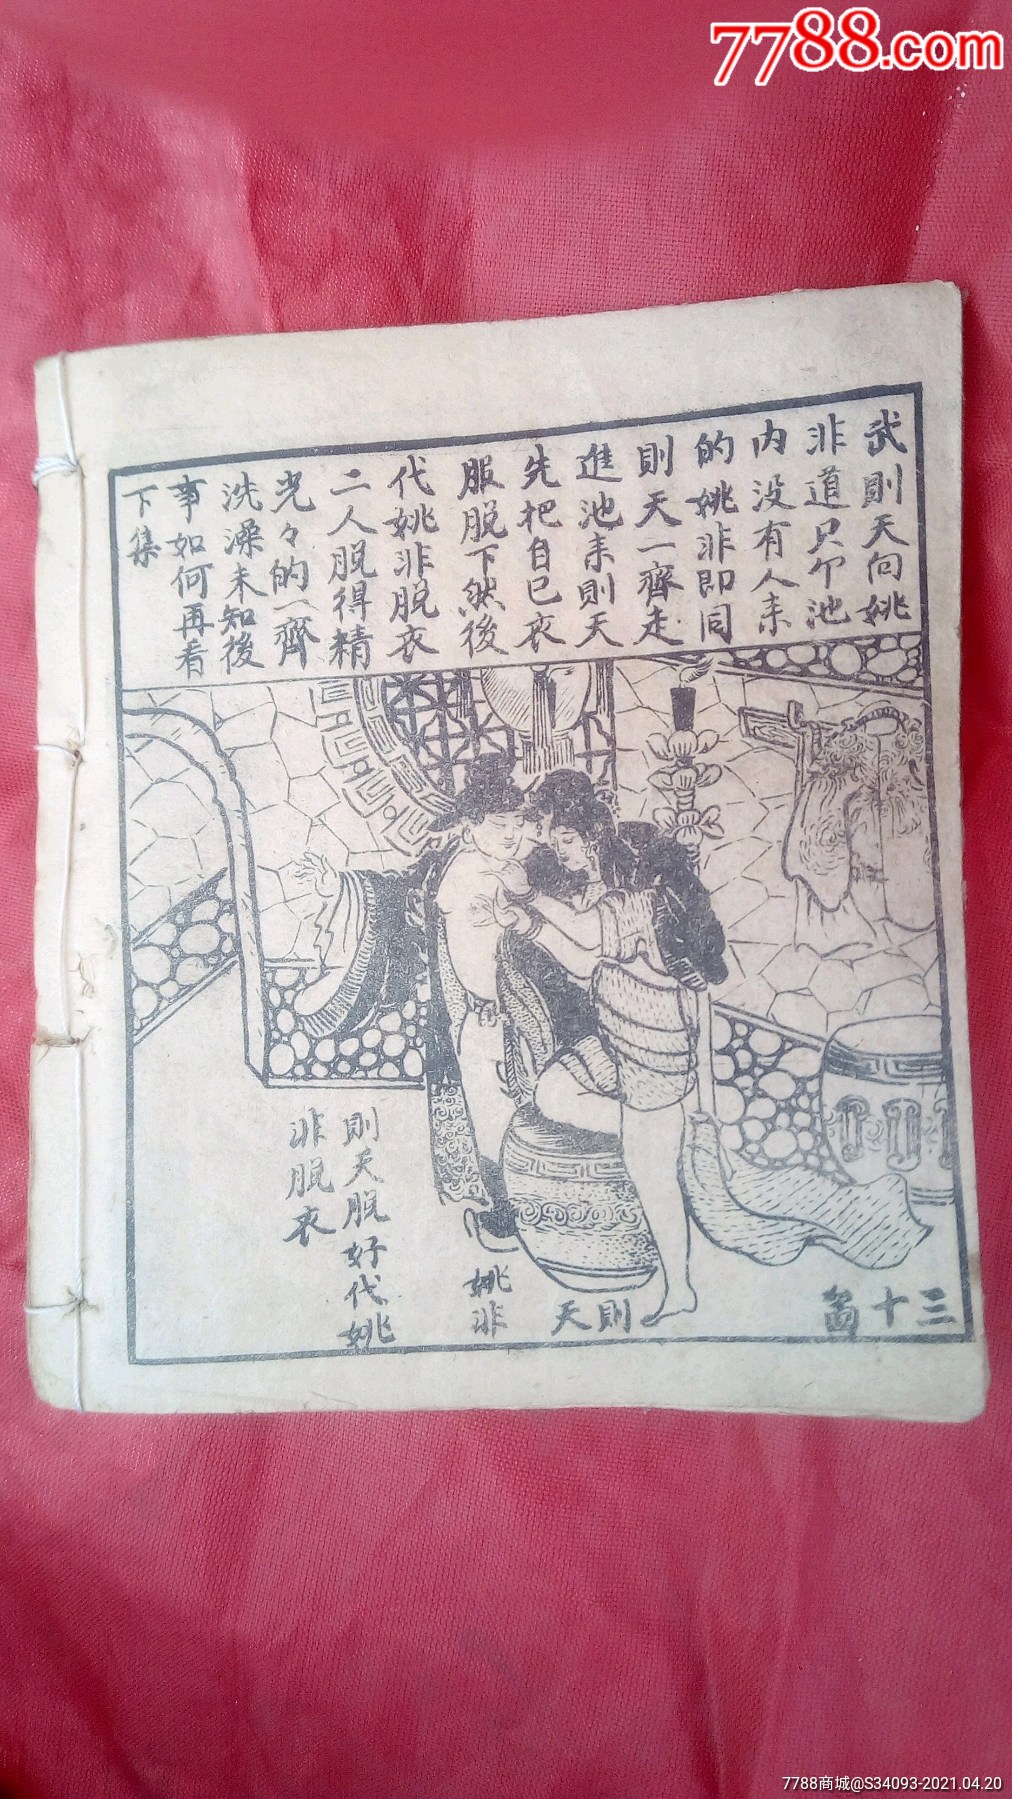 7788.com
武則天向姚
非道只个池
内没有人来
的姚非即同
則天一齊走
進池来則天
先把自已衣
服脱下然後
代姚非脱衣
二人脱得精
光々的一齊
洗澡未知後
事如何再看
下集
則天脱好代姚
非脱衣
姚非
天則
三十
7788商城@S34093-2021.04.20